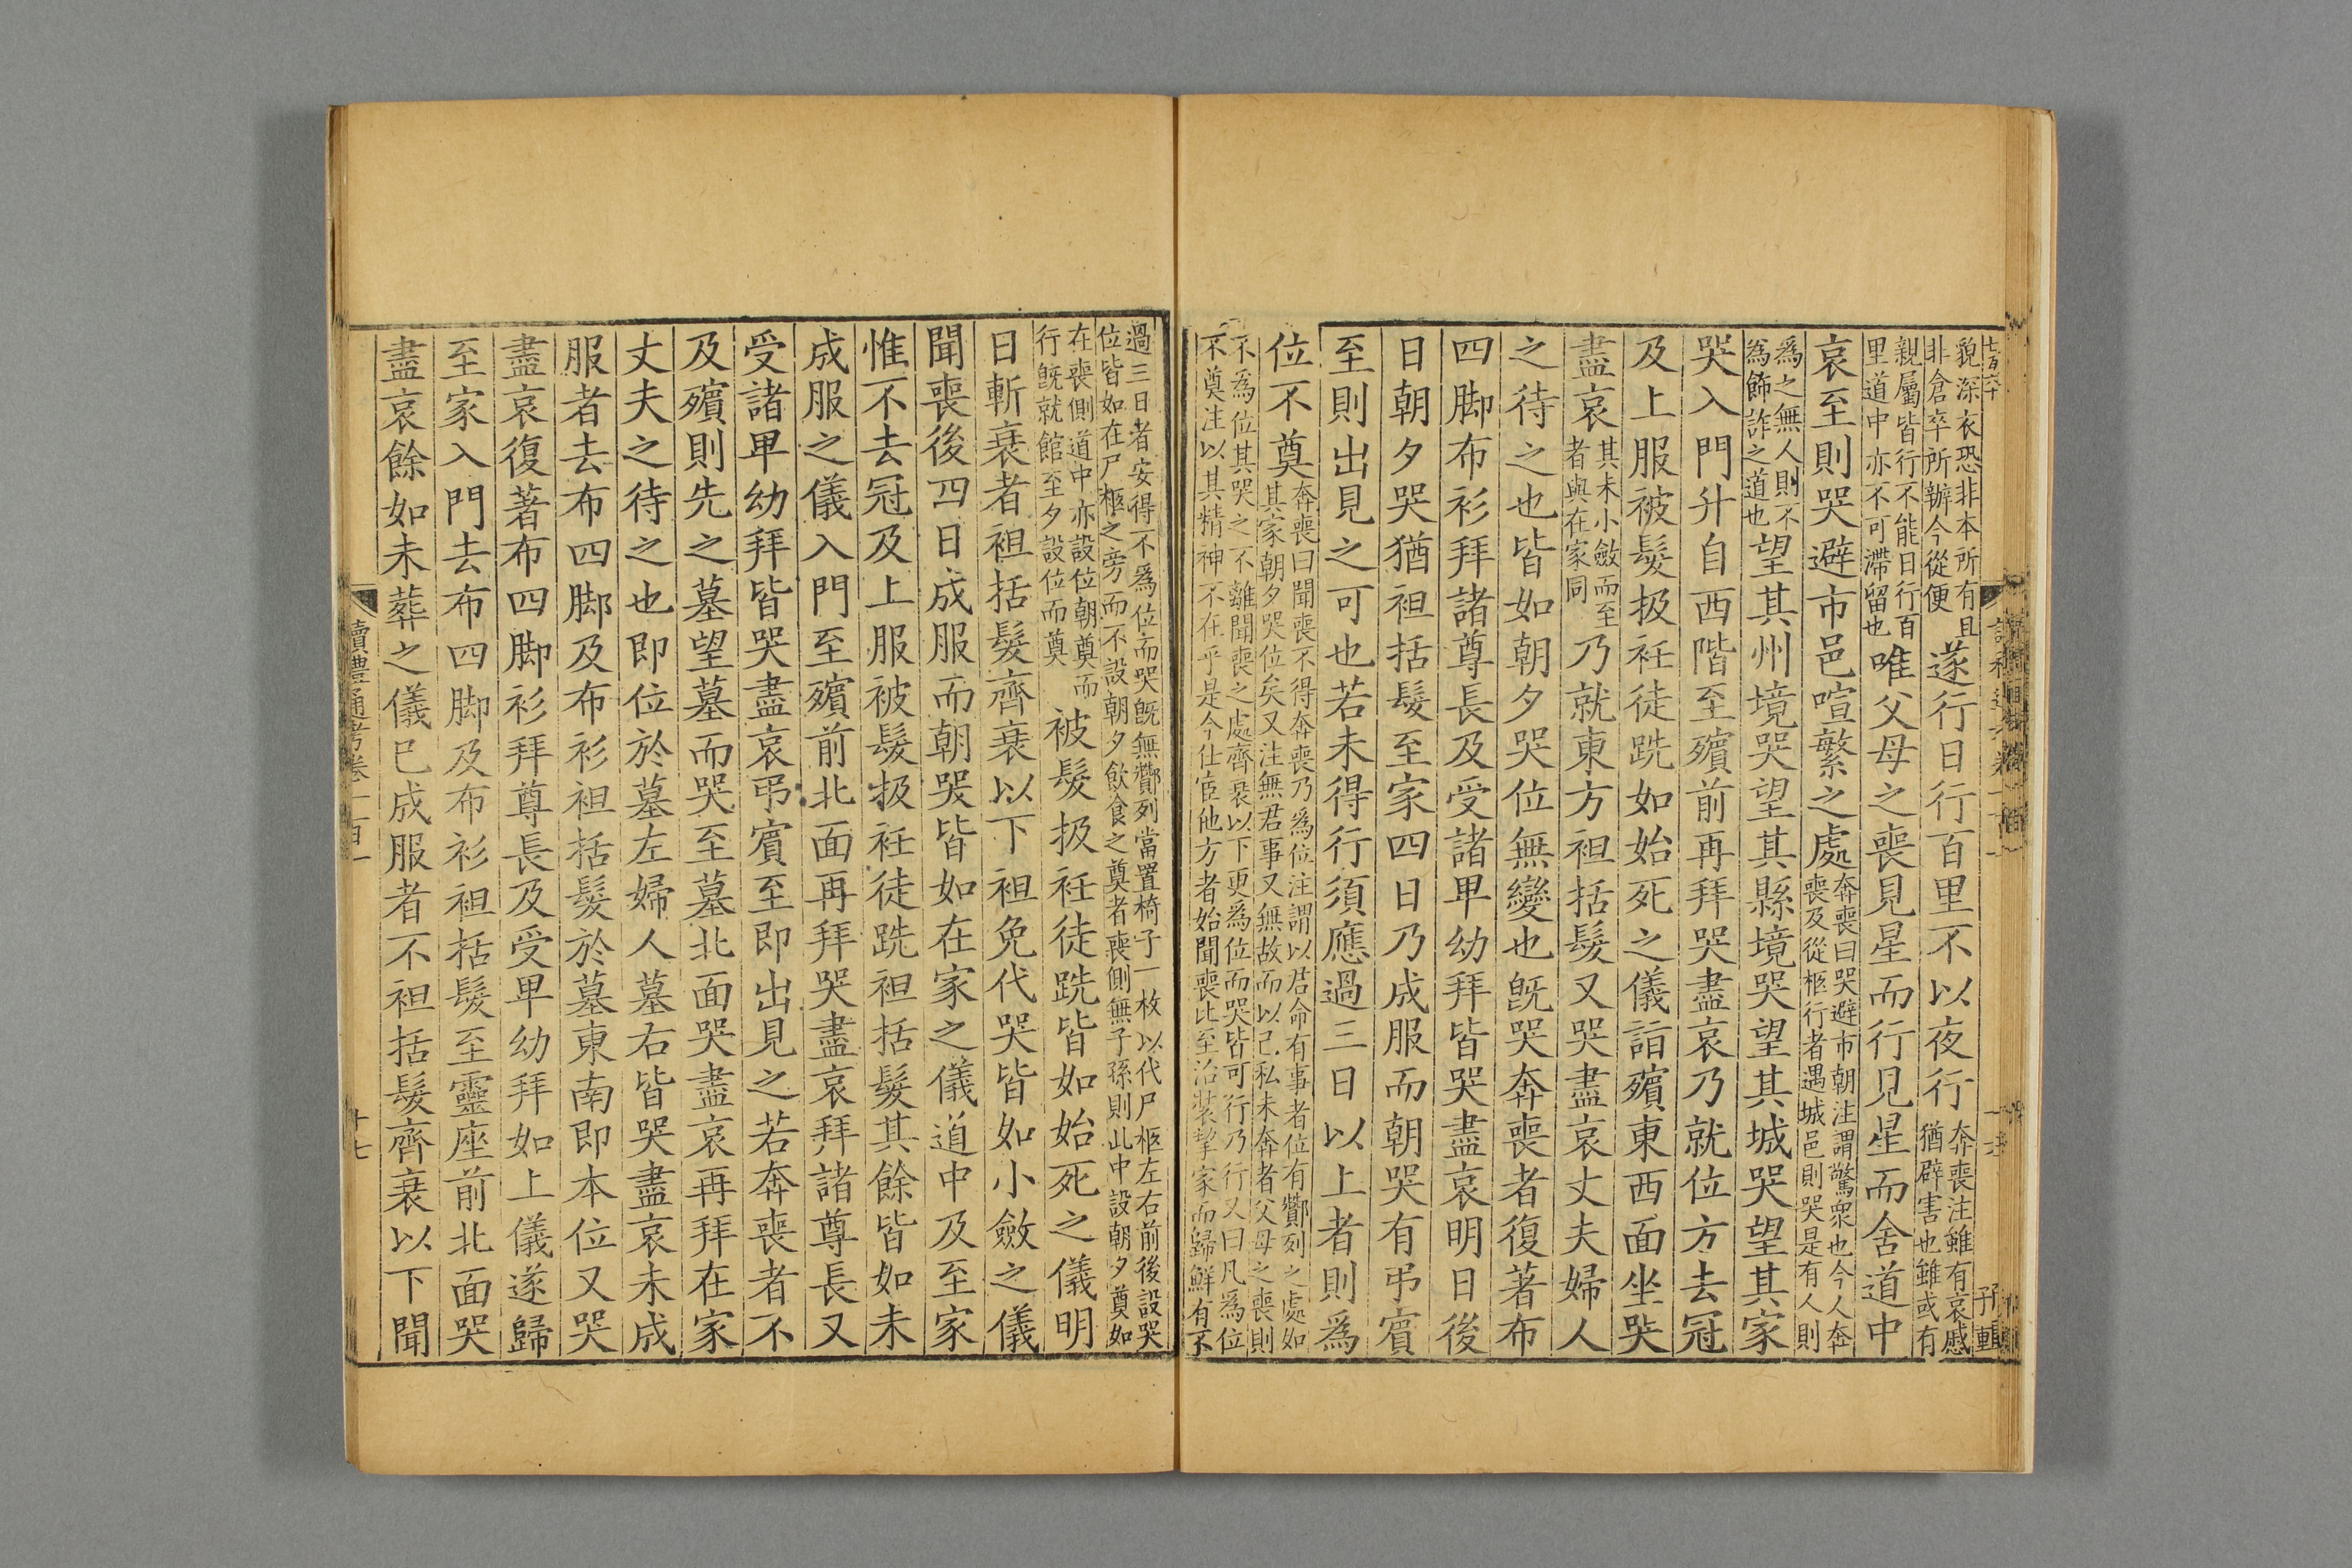 貌深衣恐非本所有且
非倉卒所辦今從便
遂行日行百里不以夜行
奔喪注雖有哀慼
猶辟害也雖或有
親屬皆行不能日行百
里道中亦不可滯留也
唯父母之喪見星而行見星而舍道中
哀至則哭避市邑喧繁之處
奔喪曰哭避市朝注謂驚衆也今人奔
喪及從柩行者遇城邑則哭是有人則
為之無人則不
為飾詐之道也
望其州境哭望其縣境哭望其城哭望其家
哭入門升自西階至殯前再拜哭盡哀乃就位方去冠
及上服被髮扱衽徒跣如始死之儀詣殯東西面坐哭
盡哀
其未小斂而至
者與在家同
乃就東方袒括髮又哭盡哀丈夫婦人
之待之也皆如朝夕哭位無變也旣哭奔喪者復著布
四脚布衫拜諸尊長及受諸卑幼拜皆哭盡哀明日後
日朝夕哭猶袒括髮至家四日乃成服而朝哭有弔賓
至則出見之可也若未得行須應過三日以上者則爲
位不奠
奔喪曰聞喪不得奔喪乃爲位注謂以君命有事者位有酇列之處如
其家朝夕哭位矣又注無君事又無故而以己私未奔者父母之喪則
不爲位其哭之不離聞喪之處齊衰以下更爲位而哭皆可行乃行又曰凡爲位
不奠注以其精神不在乎是今仕宦他方者始聞喪比至治裝挈家而歸鮮有不
過三日者安得不爲位而哭旣無酇列當置椅子一枚以代尸柩左右前後設哭
位皆如在尸柩之旁而不設朝夕飲食之奠者喪側無子孫則此中設朝夕奠如
在喪側道中亦設位朝奠而
行旣就館至夕設位而奠
被髮扱衽徒跣皆如始死之儀明
日斬衰者袒括髮齊衰以下袒免代哭皆如小斂之儀
聞喪後四日成服而朝哭皆如在家之儀道中及至家
惟不去冠及上服被髮扱衽徒跣袒括髮其餘皆如未
成服之儀入門至殯前北面再拜哭盡哀拜諸尊長又
受諸卑幼拜皆哭盡哀弔賓至即出見之若奔喪者不
及殯則先之墓望墓而哭至墓北面哭盡哀再拜在家
丈夫之待之也即位於墓左婦人墓右皆哭盡哀未成
服者去布四脚及布衫袒括髮於墓東南即本位又哭
盡哀復著布四脚衫拜尊長及受卑幼拜如上儀遂歸
至家入門去布四脚及布衫袒括髮至靈座前北面哭
盡哀餘如未葬之儀已成服者不袒括髮齊衰以下聞
讀禮通考卷一百一
十七